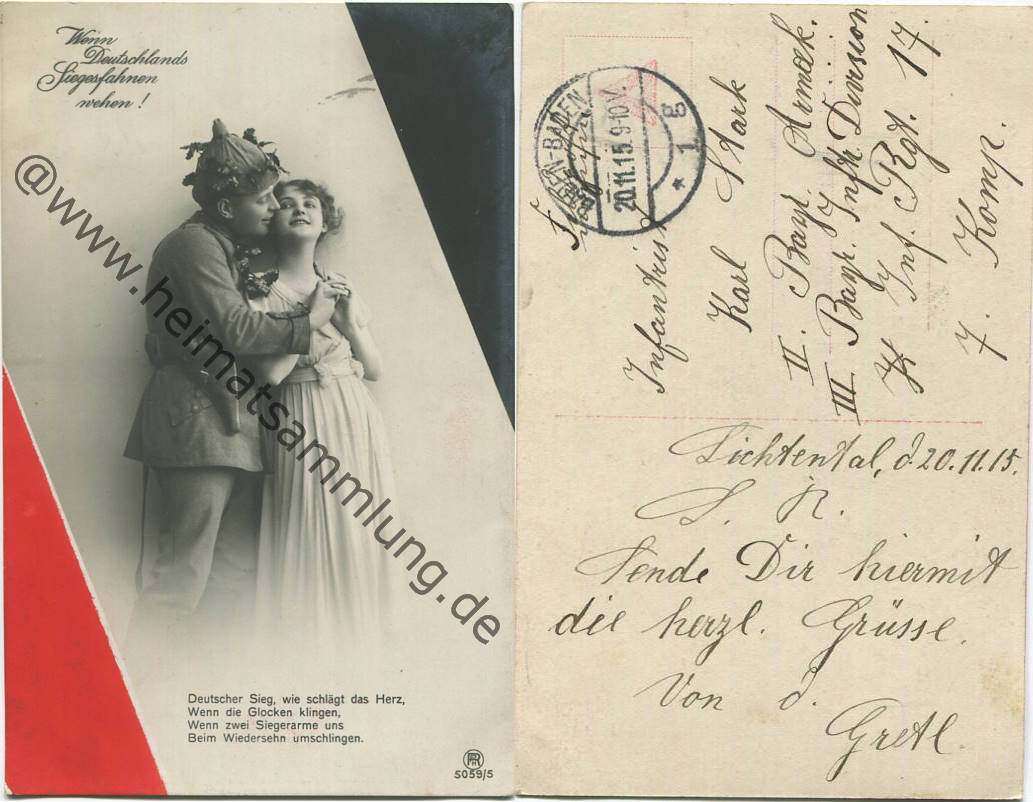 Wenn
Deutschlands
Siegesfahnen
wehen !
@www.heimatsammlung.de
Deutscher Sieg, wie schlägt das Herz,
Wenn die Glocken klingen,
Wenn zwei Siegerarme uns
Beim Wiedersehn umschlingen.
RPH
5059/5
BADEN-BADEN
20.11.15.9-10V.
* 1 g
Infantrist
Karl Stark
II. Bayr. Armeek.
III Bayr. Inftr. Division
Inf. Rgt. 17.
7. Komp.
Lichtental, d. 20.11.15.
L. K.
Sende Dir hiermit
die herzl. Grüsse.
Von d.
Gretl.